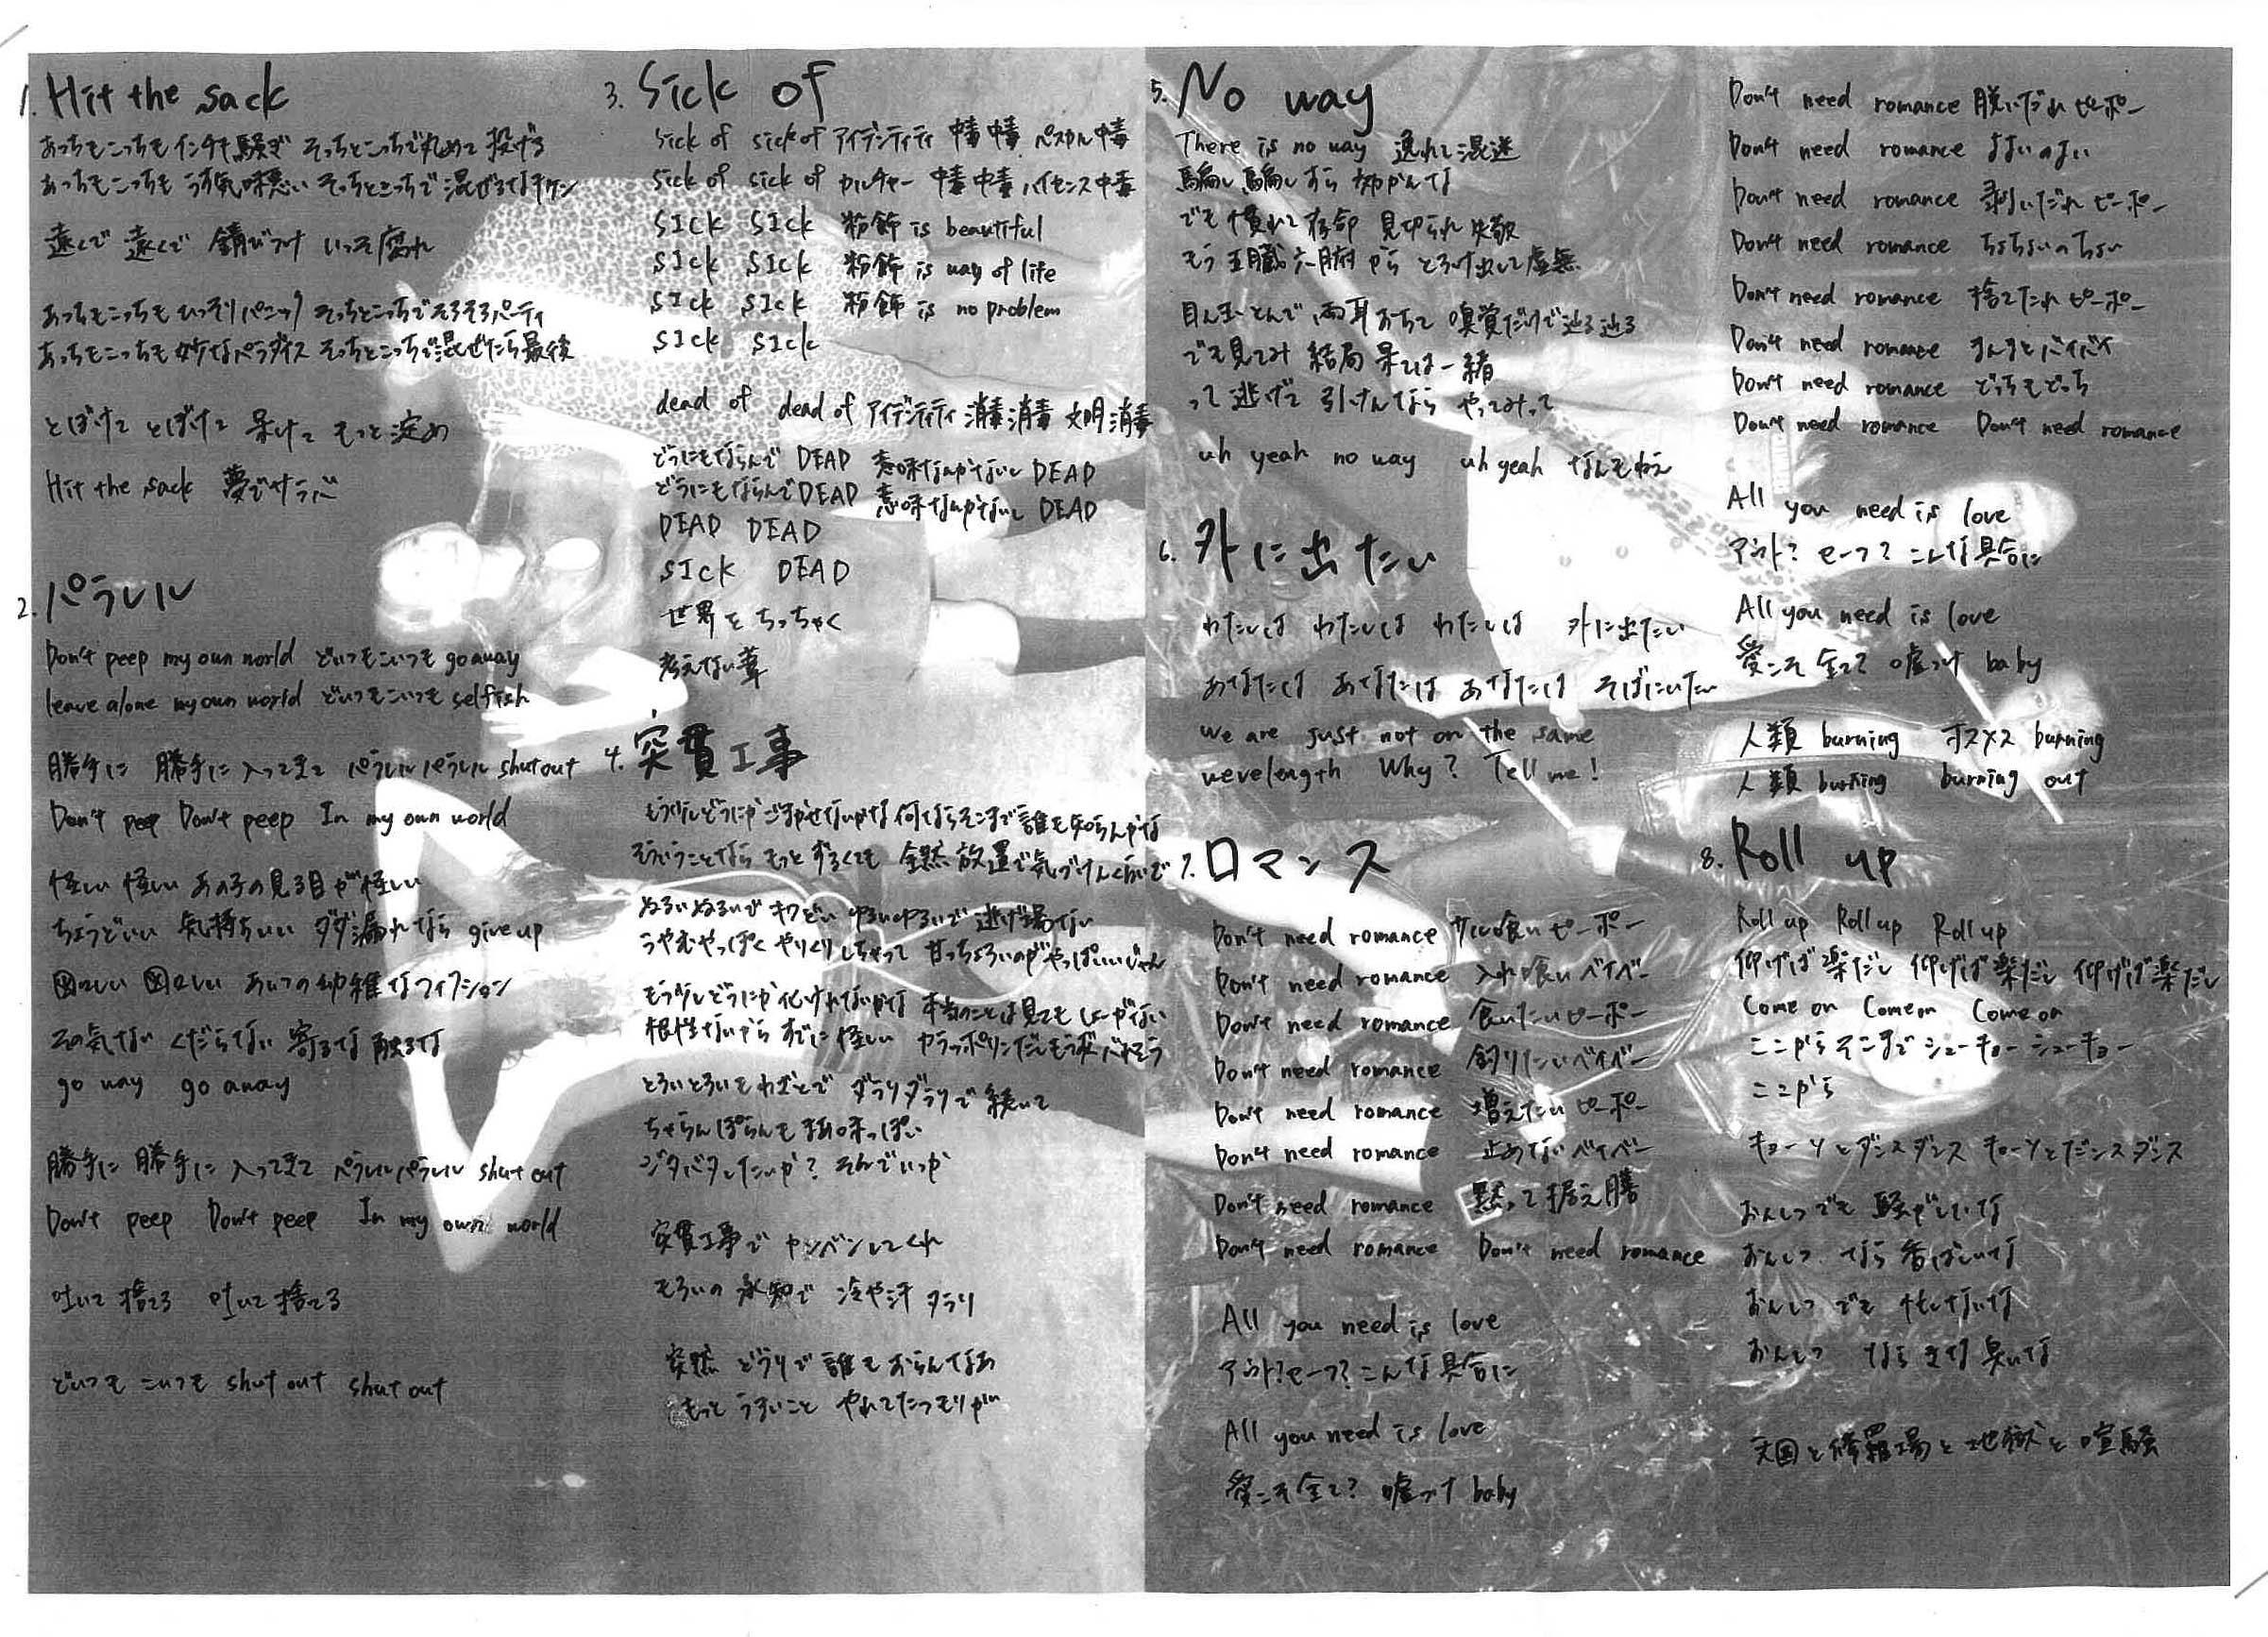 1. Hit the sack
あっちもこっちもインチキ騒ぎ そっちとこっちで丸めて投げる
あっちもこっちも うす気味悪い そっちとこっちで混ぜるなキケン
遠くで 遠くで 錆びつけ いっそ腐れ
あっちもこっちも ひっそりパニック そっちとこっちでそろそろパーティ
あっちもこっちも 妙なパラダイス そっちとこっちで混ぜたら最後
とぼけて とぼけて 呆けて もっと淀め
Hit the sack 夢でサラバ
2. パラレル
Don't peep my own world どいつもこいつも go away
leave alone my own world どいつもこいつも selfish
勝手に 勝手に 入ってきて パラレルパラレル shut out
Don't peep Don't peep In my own world
怪しい 怪しい あの子の見る目が怪しい
ちょうどいい 気持ちいい ダダ漏れなら give up
図々しい 図々しい あいつの幼稚なフィクション
その気ない くだらない 寄るな 触るな
go way go away
勝手に 勝手に 入ってきて パラレルパラレル shut out
Don't peep Don't peep In my own world
吐いて捨てる 吐いて捨てる
どいつも こいつも shut out shut out
3. Sick of
Sick of sick of アイデンティティ 中毒 中毒 パスカル 中毒
Sick of sick of カルチャー 中毒 中毒 ハイセンス 中毒
SICK SICK 粉飾 is beautiful
SICK SICK 粉飾 is way of life
SICK SICK 粉飾 is no problem
SICK SICK
dead of dead of アイデンティティ 消毒 消毒 文明 消毒
どうにもならんで DEAD 意味なんかないし DEAD
どうにもならんで DEAD 意味なんかないし DEAD
DEAD DEAD
SICK DEAD
世界を ちっちゃく
考えない葦
4. 突貫工事
もう少しどうにか ごまかせないかな 何ならそこまで誰も知らんがな
そういうことなら もっと ずるくても 全然 放置で気づけんくらいで
ぬるいぬるいで キワどい ゆるいゆるいで 逃げ場ない
うやむやっぽく やりくりしちゃって 甘っちょろいのが やっぱいいじゃん
もう少しどうにか 化けれないかな 本当のことは見ても しょーがない
根性ないから すでに怪しい カラッポリンだし もうボベそう
とろいとろいも わざとで ダラリダラリで 続いて
ちゃらんぽらんも まあ味っぽい
ジタバタしたいか? そんでいっか
突貫工事で カンベンしてくれ
もろいの 承知で 冷や汗 タラリ
突然 どうりで 誰も おらんなあ
もっと うまいこと やれてたつもりが
5. No way
There is no way 逸れて混迷
騙し騙しすら 姉がんな
でも慣れて存命 見切られ失敬
もう五臓六腑から とろけ出して虚無
目ん玉とんで 両耳おちて 嗅覚だけで辿る辿る
でも見てみ 結局 果ては一緒
って 逃げて 引けんなら やってみって
uh yeah no way uh yeah なんもねえ
6. 外に出たい
わたしは わたしは わたしは 外に出たい
あなたは あなたは あなたは そばにいたい
we are just not on the same
wevelength Why? Tell me!
7. ロマンス
Don't need romance サルい喰いピーポー
Don't need romance 入れ喰いベイベー
Don't need romance 食いたいピーポー
Don't need romance 釣りたいベイベー
Don't need romance 増えたいピーポー
Don't need romance 止めないベイベー
Don't need romance 黙って据え膳
Don't need romance Don't need romance
All you need is love
アウト?セーフ? こんな具合に
All you need is love
愛こそ全て? 嘘つけ baby
Don't need romance 脱いだれピーポー
Don't need romance よよいのよい
Don't need romance 剥いだれピーポー
Don't need romance ちょちょいのちょい
Don't need romance 捨てたれピーポー
Don't need romance まんまとバイバイ
Don't need romance どっちもどっち
Don't need romance Don't need romance
All you need is love
アウト? セーフ? こんな具合に
All you need is love
愛こそ 全て? 嘘つけ baby
人類 burning オスメス burning
人類 burning burning out
8. Roll up
Roll up Roll up Roll up
仰げば楽だし 仰げば楽だし 仰げば楽だし
Come on Come on Come on
ここからそこまで シューキョー シューキョー
ここから
キョーソとダンスダンス キョーソとダンスダンス
おんしつでも 騒がしいな
おんしつ なら 香ばしいな
おんしつ でも 忙しないな
おんしつ なら きな臭いな
天国と修羅場と地獄と喧騒